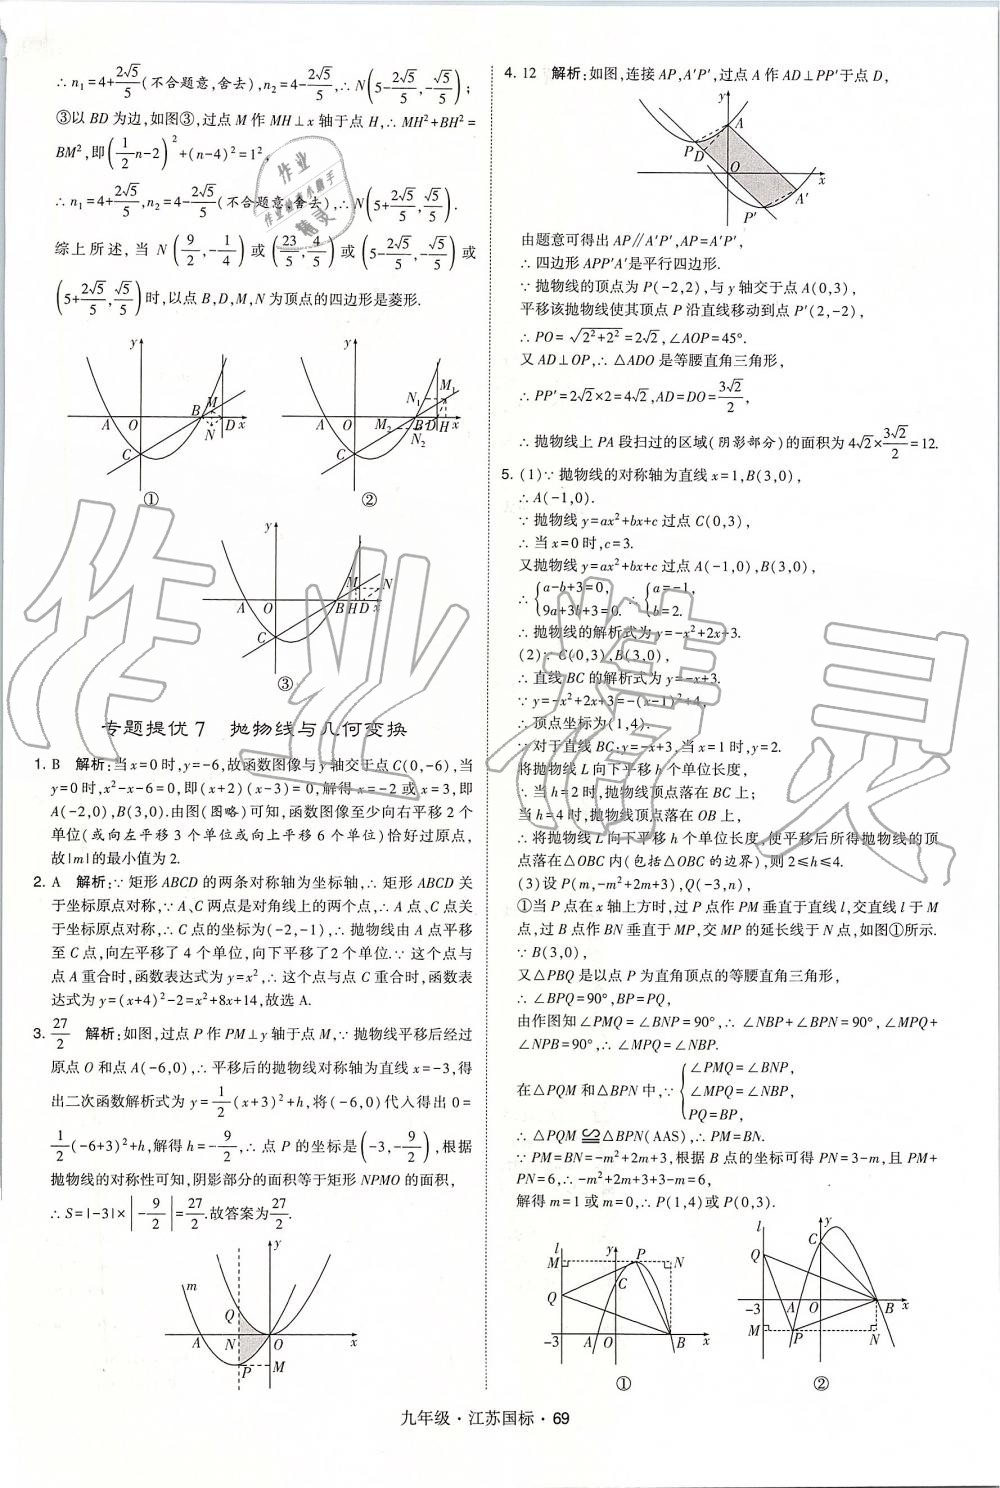 ∴n₁=4+2√5/5(不合题意,舍去),n₂=4-2√5/5,∴N(5-2√5/5,-√5/5);
③以 BD 为边,如图③,过点 M 作 MH⊥x 轴于点 H,∴MH²+BH²=
BM²,即(1/2n-2)²+(n-4)²=1²,
∴n₁=4+2√5/5,n₂=4-2√5/5(不合题意,舍去),∴N(5+2√5/5,√5/5).
综上所述,当 N(9/2,-1/4)或(23/5,4/5)或(5-2√5/5,-√5/5)或
(5+2√5/5,√5/5)时,以点 B,D,M,N 为顶点的四边形是菱形.
y
M
B
A O N D x
C
①
y
M₁
N₁
A O M₂ B D H x
N₂
C
②
y
M N
A O B H D x
C
③
专题提优 7 抛物线与几何变换
1. B 解析:当 x=0 时,y=-6,故函数图像与 y 轴交于点 C(0,-6),当
y=0 时,x²-x-6=0,即(x+2)(x-3)=0,解得 x=-2 或 x=3,即
A(-2,0),B(3,0).由图(图略)可知,函数图像至少向右平移 2 个
单位(或向左平移 3 个单位或向上平移 6 个单位)恰好过原点,
故|m|的最小值为 2.
2. A 解析:∵矩形 ABCD 的两条对称轴为坐标轴,∴矩形 ABCD 关
于坐标原点对称,∵A、C 两点是对角线上的两个点,∴点 A、C 点关
于坐标原点对称,∴C 点的坐标为(-2,-1),∴抛物线由 A 点平移
至 C 点,向左平移了 4 个单位,向下平移了 2 个单位.∵这个点与
点 A 重合时,函数表达式为 y=x²,∴这个点与点 C 重合时,函数表
达式为 y=(x+4)²-2=x²+8x+14,故选 A.
3. 27/2 解析:如图,过点 P 作 PM⊥y 轴于点 M,∵抛物线平移后经过
原点 O 和点 A(-6,0),∴平移后的抛物线对称轴为直线 x=-3,得
出二次函数解析式为 y=1/2(x+3)²+h,将(-6,0)代入得出 0=
1/2(-6+3)²+h,解得 h=-9/2,∴点 P 的坐标是(-3,-9/2),根据
抛物线的对称性可知,阴影部分的面积等于矩形 NPMO 的面积,
∴S=|-3|×|-9/2|=27/2.故答案为27/2.
y
m
Q
A N O x
P M
4. 12 解析:如图,连接 AP,A′P′,过点 A 作 AD⊥PP′于点 D,
y
A
P D
O x
A′
P′
由题意可得出 AP∥A′P′,AP=A′P′,
∴四边形 APP′A′是平行四边形.
∵抛物线的顶点为 P(-2,2),与 y 轴交于点 A(0,3),
平移该抛物线使其顶点 P 沿直线移动到点 P′(2,-2),
∴PO=√2²+2²=2√2,∠AOP=45°.
又 AD⊥OP,∴△ADO 是等腰直角三角形,
∴PP′=2√2×2=4√2,AD=DO=3√2/2,
∴抛物线上 PA 段扫过的区域(阴影部分)的面积为 4√2×3√2/2=12.
5. (1)∵抛物线的对称轴为直线 x=1,B(3,0),
∴A(-1,0).
∵抛物线 y=ax²+bx+c 过点 C(0,3),
∴当 x=0 时,c=3.
又抛物线 y=ax²+bx+c 过点 A(-1,0),B(3,0),
∴{a-b+3=0, 9a+3b+3=0. ∴{a=-1, b=2.
∴抛物线的解析式为 y=-x²+2x+3.
(2)∵C(0,3),B(3,0),
∴直线 BC 的解析式为 y=-x+3.
∵y=-x²+2x+3=-(x-1)²+4,
∴顶点坐标为(1,4).
∵对于直线 BC:y=-x+3,当 x=1 时,y=2.
将抛物线 L 向下平移 h 个单位长度,
∴当 h=2 时,抛物线顶点落在 BC 上;
当 h=4 时,抛物线顶点落在 OB 上,
∴将抛物线 L 向下平移 h 个单位长度,使平移后所得抛物线的顶
点落在△OBC 内(包括△OBC 的边界),则 2≤h≤4.
(3)设 P(m,-m²+2m+3),Q(-3,n),
①当 P 点在 x 轴上方时,过 P 点作 PM 垂直于直线 l,交直线 l 于 M
点,过 B 点作 BN 垂直于 MP,交 MP 的延长线于 N 点,如图①所示.
∵B(3,0),
又△PBQ 是以点 P 为直角顶点的等腰直角三角形,
∴∠BPQ=90°,BP=PQ,
由作图知∠PMQ=∠BNP=90°,∴∠NBP+∠BPN=90°,∠MPQ+
∠NPB=90°,∴∠MPQ=∠NBP.
在△PQM 和△BPN 中,∵{∠PMQ=∠BNP, ∠MPQ=∠NBP, PQ=BP,
∴△PQM≌△BPN(AAS),∴PM=BN.
∵PM=BN=-m²+2m+3,根据 B 点的坐标可得 PN=3-m,且 PM+
PN=6,∴-m²+2m+3+3-m=6,
解得 m=1 或 m=0,∴P(1,4)或 P(0,3).
l y
M P N
C
Q
-3 A O B x
①
l y
C
Q
-3 A O B x
M P N
②
九年级·江苏国标·69
作业精灵